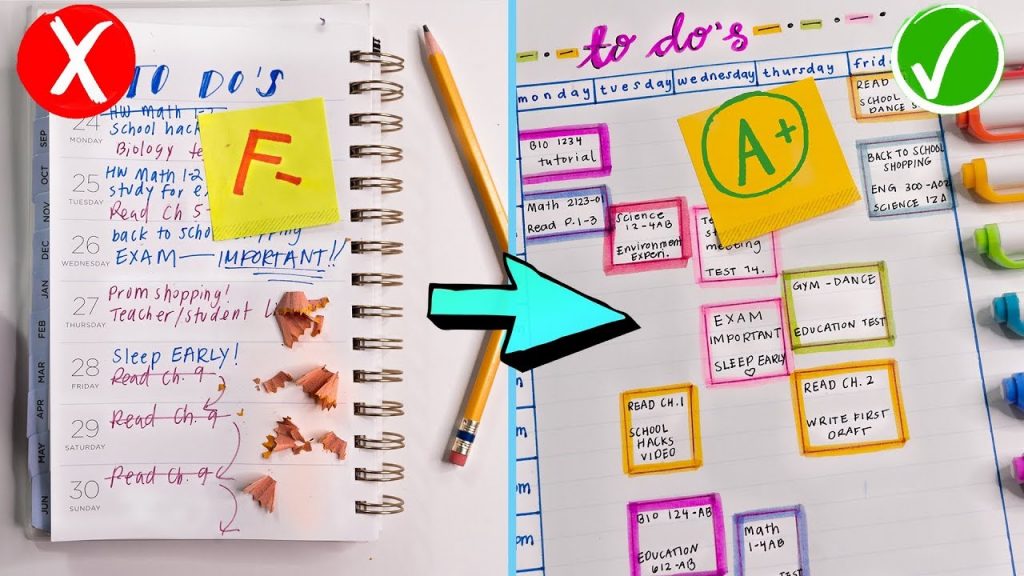 X
TO DO'S
F-
SEP
OCT
NOV
DEC
JAN
FEB
MAR
APR
MAY
JUN
24
MONDAY
HW Math 1-2
School hack
Biology
25
TUESDAY
HW Math 1-2
study for
Read Ch 5
26
WEDNESDAY
back to shopping
EXAM — IMPORTANT!!
27
THURSDAY
Prom shopping!
Teacher/student
28
FRIDAY
Sleep EARLY!
Read Ch. 9
29
SATURDAY
Read Ch. 9
30
SUNDAY
Read Ch. 9
to do's
monday
tuesday
wednesday
thursday
frid
A+
BIO 1234
tutorial
Math 2123-0
Read P.1-3
Science
12-4AB
Environment
Experi.
meeting
TEST 14.
EXAM
IMPORTANT
SLEEP EARLY
GYM - DANCE
EDUCATION TEST
READ
SCHOOL
DANCE
BACK TO SCHOOL
SHOPPING
ENG 300-A02
SCIENCE 12A
READ CH.1
SCHOOL
HACKS
VIDEO
READ CH. 2
WRITE FIRST
DRAFT
BIO 124-AB
EDUCATION
612-AB
Math
1-4AB
TEST